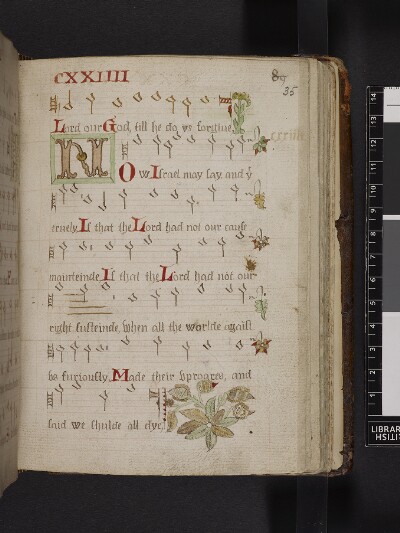 CXXIIII
35
Lord our God, till he do us forgiue
cxxiiii
NOw Israel may say, and yt
truely, If that the Lord had not our cause
mainteinde, If that the Lord had not our
right susteinde, when all the worlde against
be furiously, Made their vproares, and
said we shulde all dye,